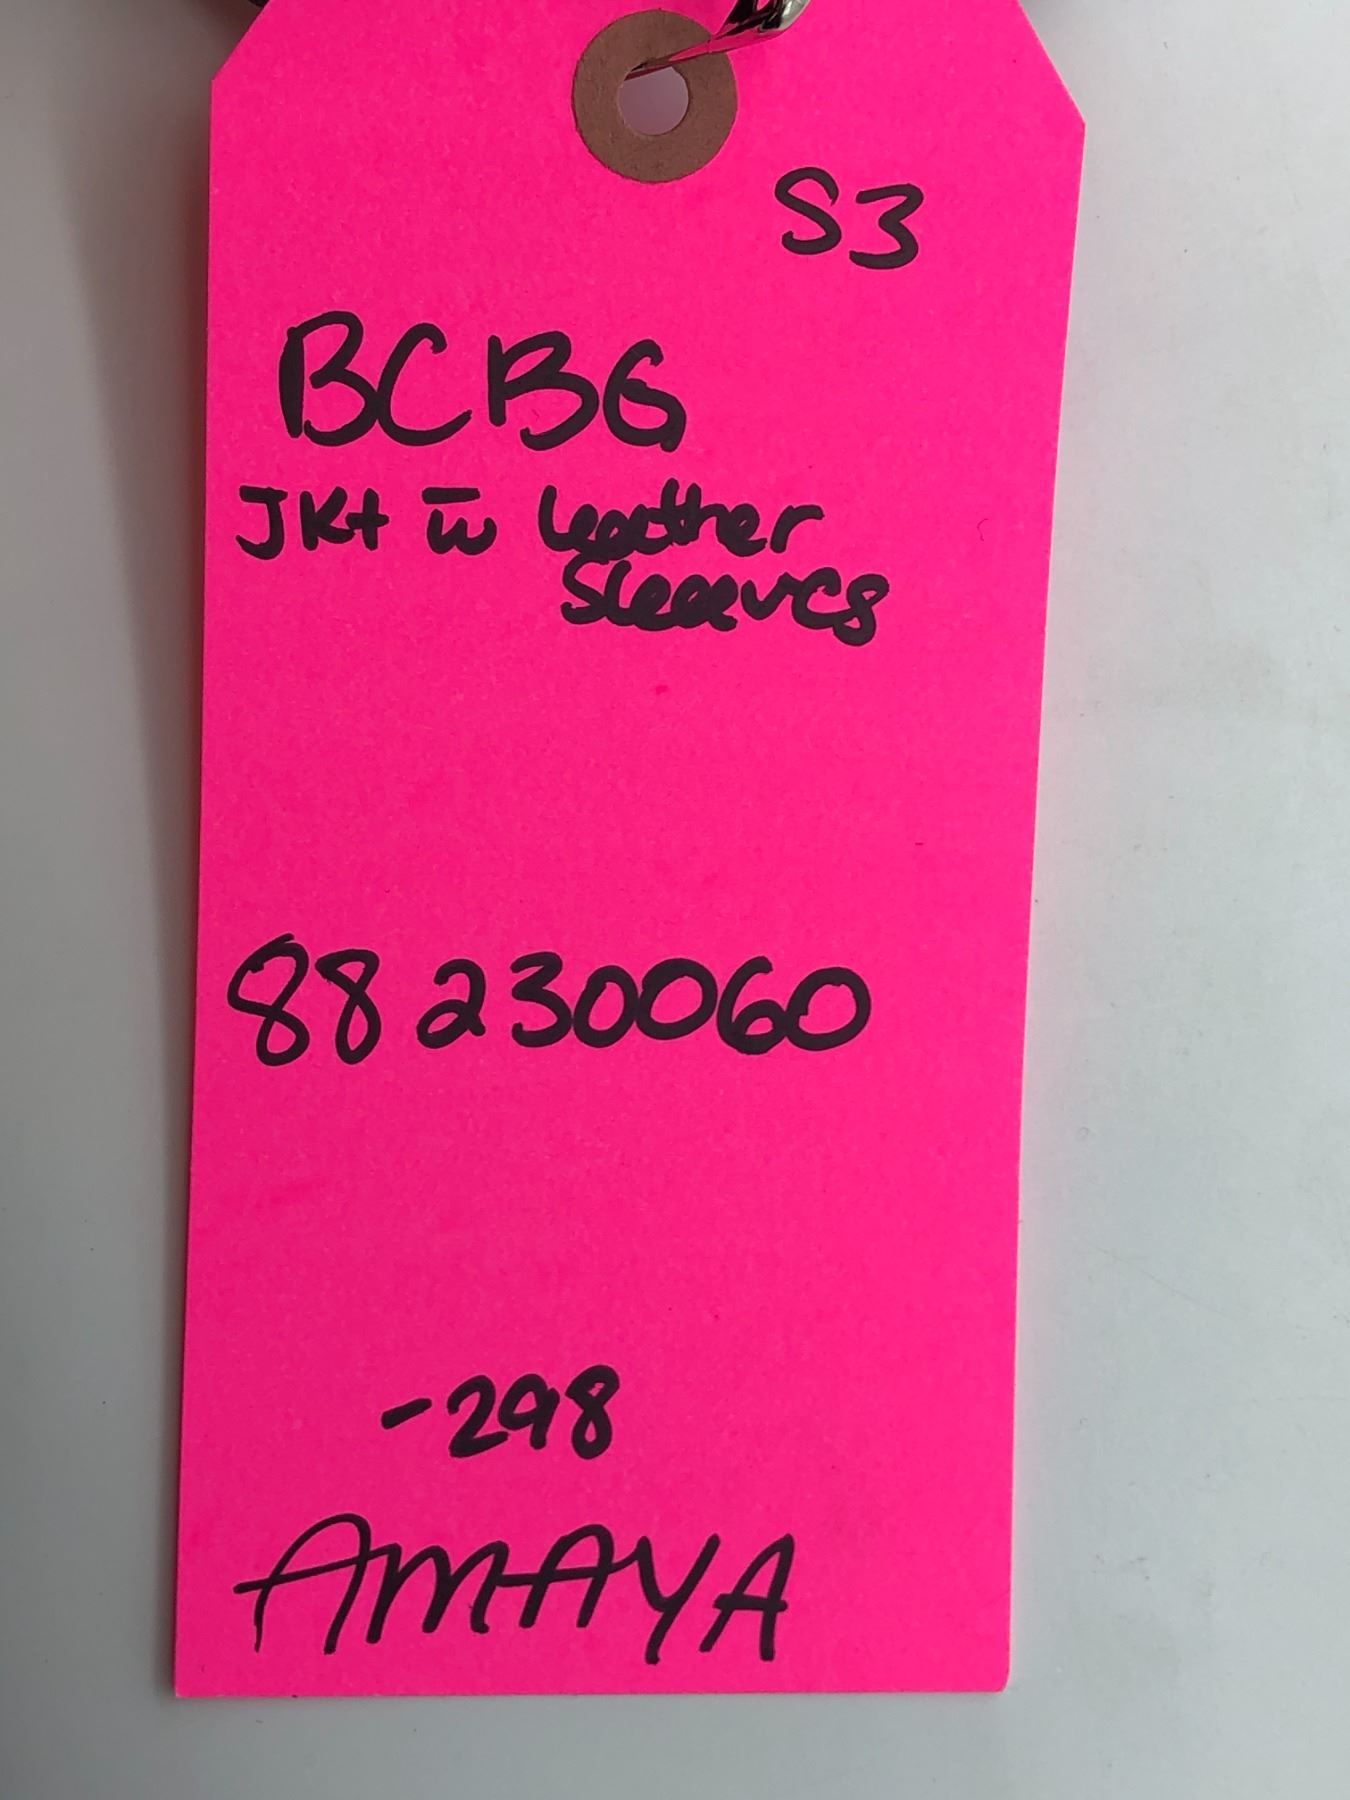 S3
BCBG
JKt w̅ Leather
Sleeves
88230060
-298
AMAYA